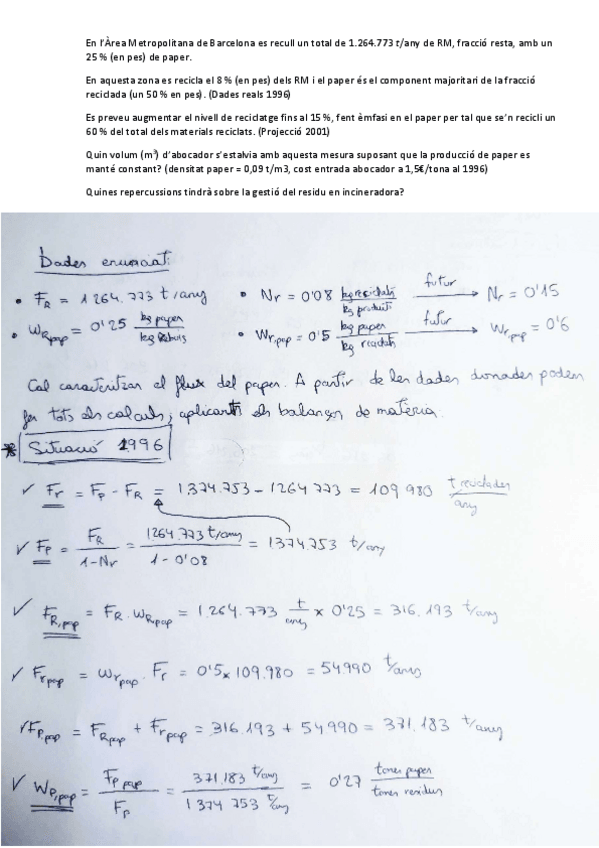 En l'Àrea Metropolitana de Barcelona es recull un total de 1.264.773 t/any de RM, fracció resta, amb un
25 % (en pes) de paper.
En aquesta zona es recicla el 8 % (en pes) dels RM i el paper és el component majoritari de la fracció
reciclada (un 50 % en pes). (Dades reals 1996)
Es preveu augmentar el nivell de reciclatge fins al 15 %, fent èmfasi en el paper per tal que se'n recicli un
60 % del total dels materials reciclats. (Projecció 2001)
Quin volum (m³) d'abocador s'estalvia amb aquesta mesura suposant que la producció de paper es
manté constant? (densitat paper = 0,09 t/m3, cost entrada abocador a 1,5€/tona al 1996)
Quines repercussions tindrà sobre la gestió del residu en incineradora?
Dades enunciat:
• FR = 1264.773 t/any • Nr = 0'08 kg reciclats / kg produït futur → Nr = 0'15
• WR,pap = 0'25 kg paper / kg Rebuig • Wr,pap = 0'5 kg paper / kg reciclats futur → Wr,pap = 0'6
Cal caracteritzar el flux del paper. A partir de les dades donades podem
fer tots els càlculs, aplicant els balanços de matèria.
* Situació 1996
✓ Fr = Fp - FR = 1.374.753 - 1264773 = 109980 t reciclades / any
✓ Fp = FR / 1-Nr = 1264.773 t/any / 1-0'08 = 1374753 t/any
✓ FR,pap = FR · WR,pap = 1.264.773 t/any x 0'25 = 316.193 t/any
✓ Fr pap = Wr pap · Fr = 0'5 x 109.980 = 54990 t/any
✓ Fp pap = FR pap + Fr pap = 316.193 + 54990 = 371.183 t/any
✓ Wp,pap = Fp pap / Fp = 371.183 t/any / 1374753 t/any = 0'27 tones paper / tones residus